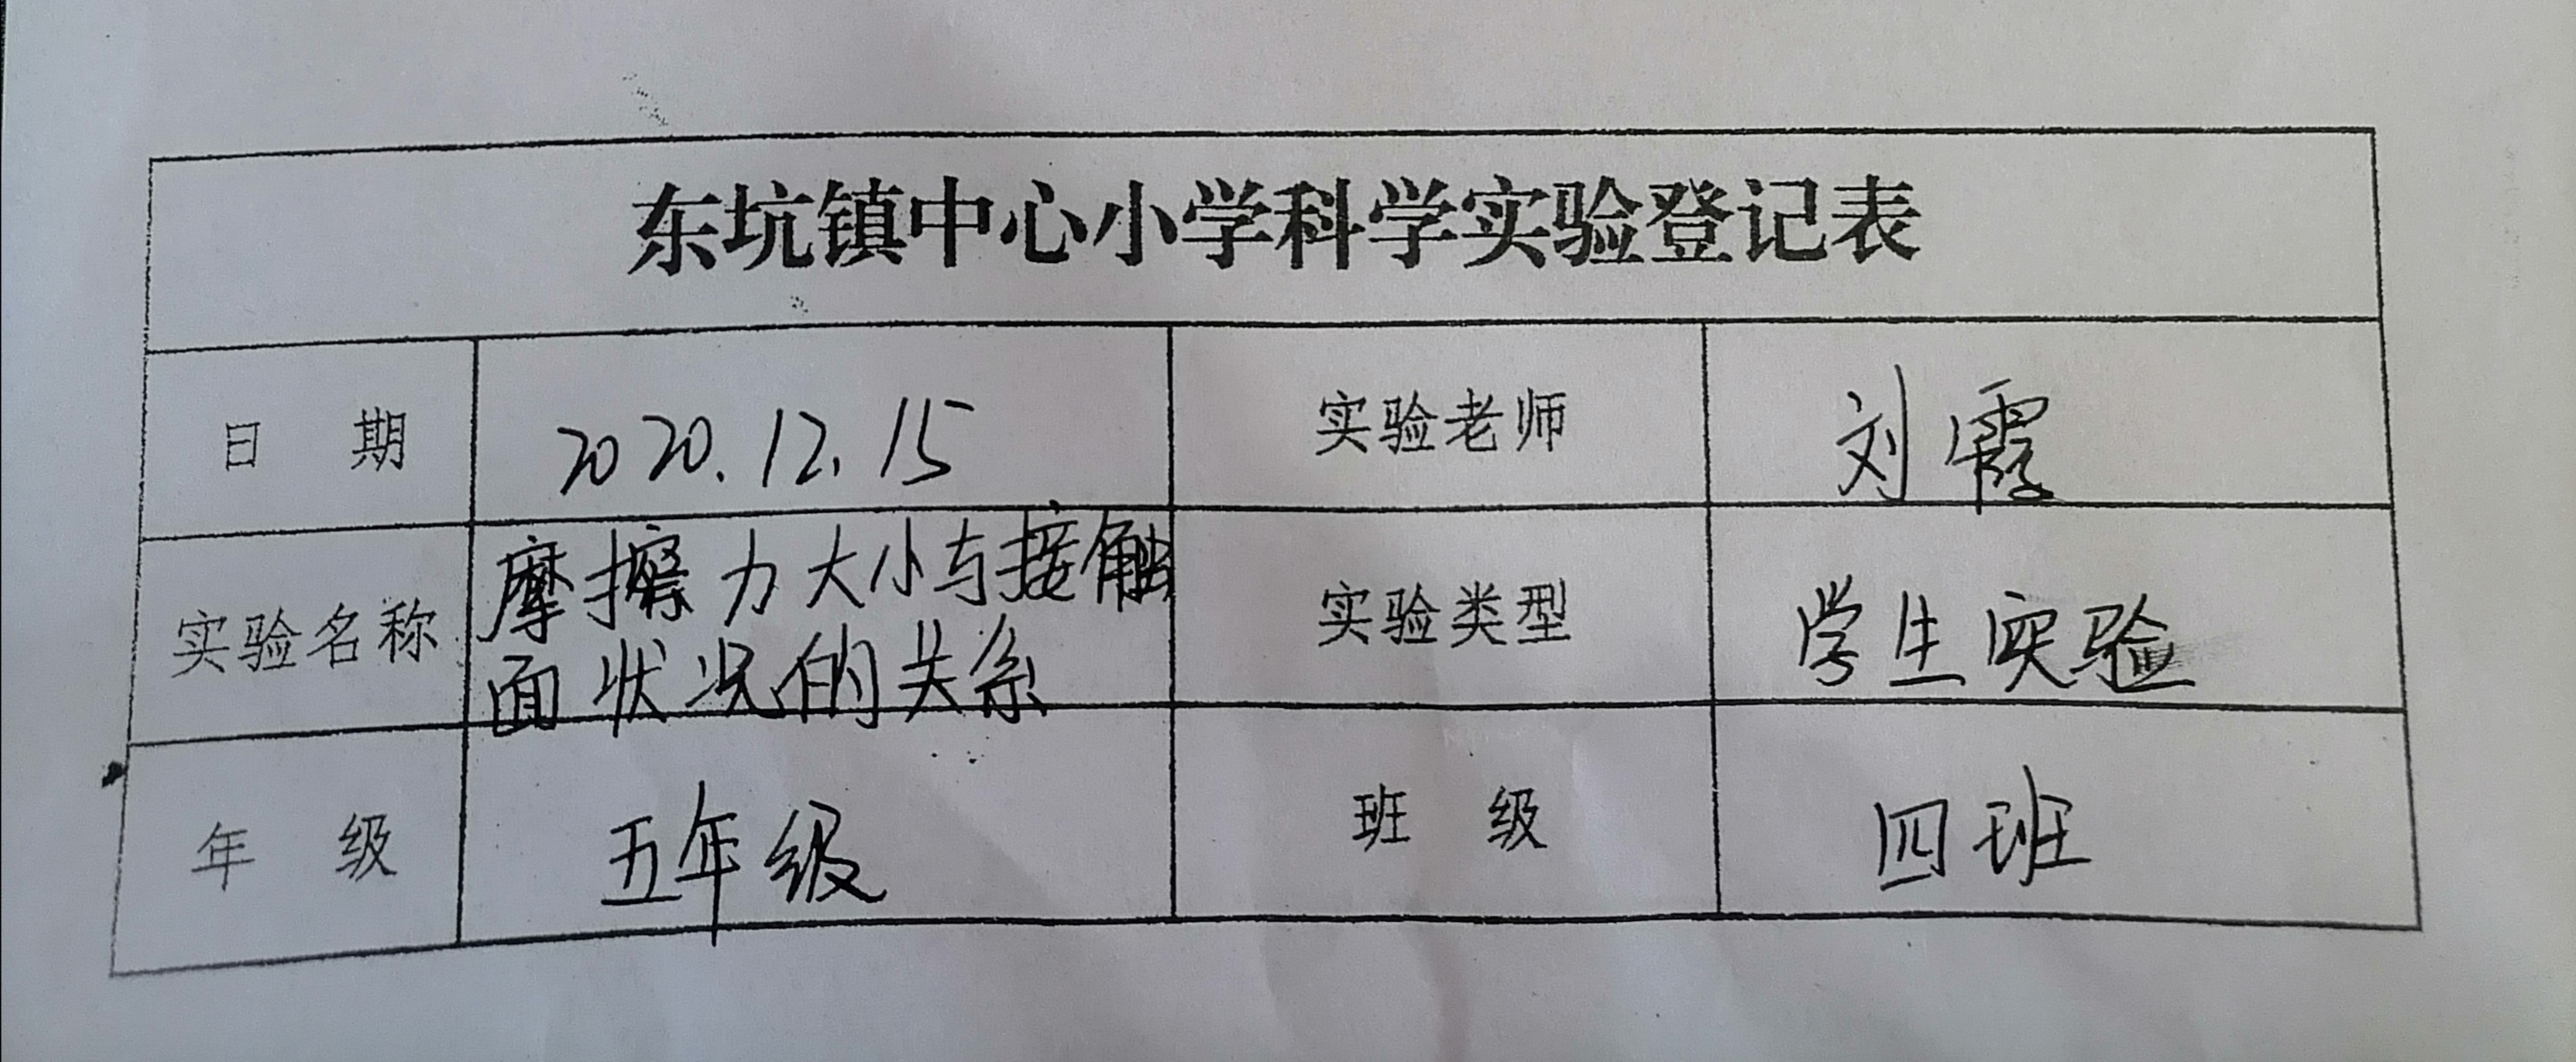 东坑镇中心小学科学实验登记表
日 期 2020.12.15 实验老师 刘霞
实验名称 摩擦力大小与接触
面状况的关系 实验类型 学生实验
年 级 五年级 班 级 四班